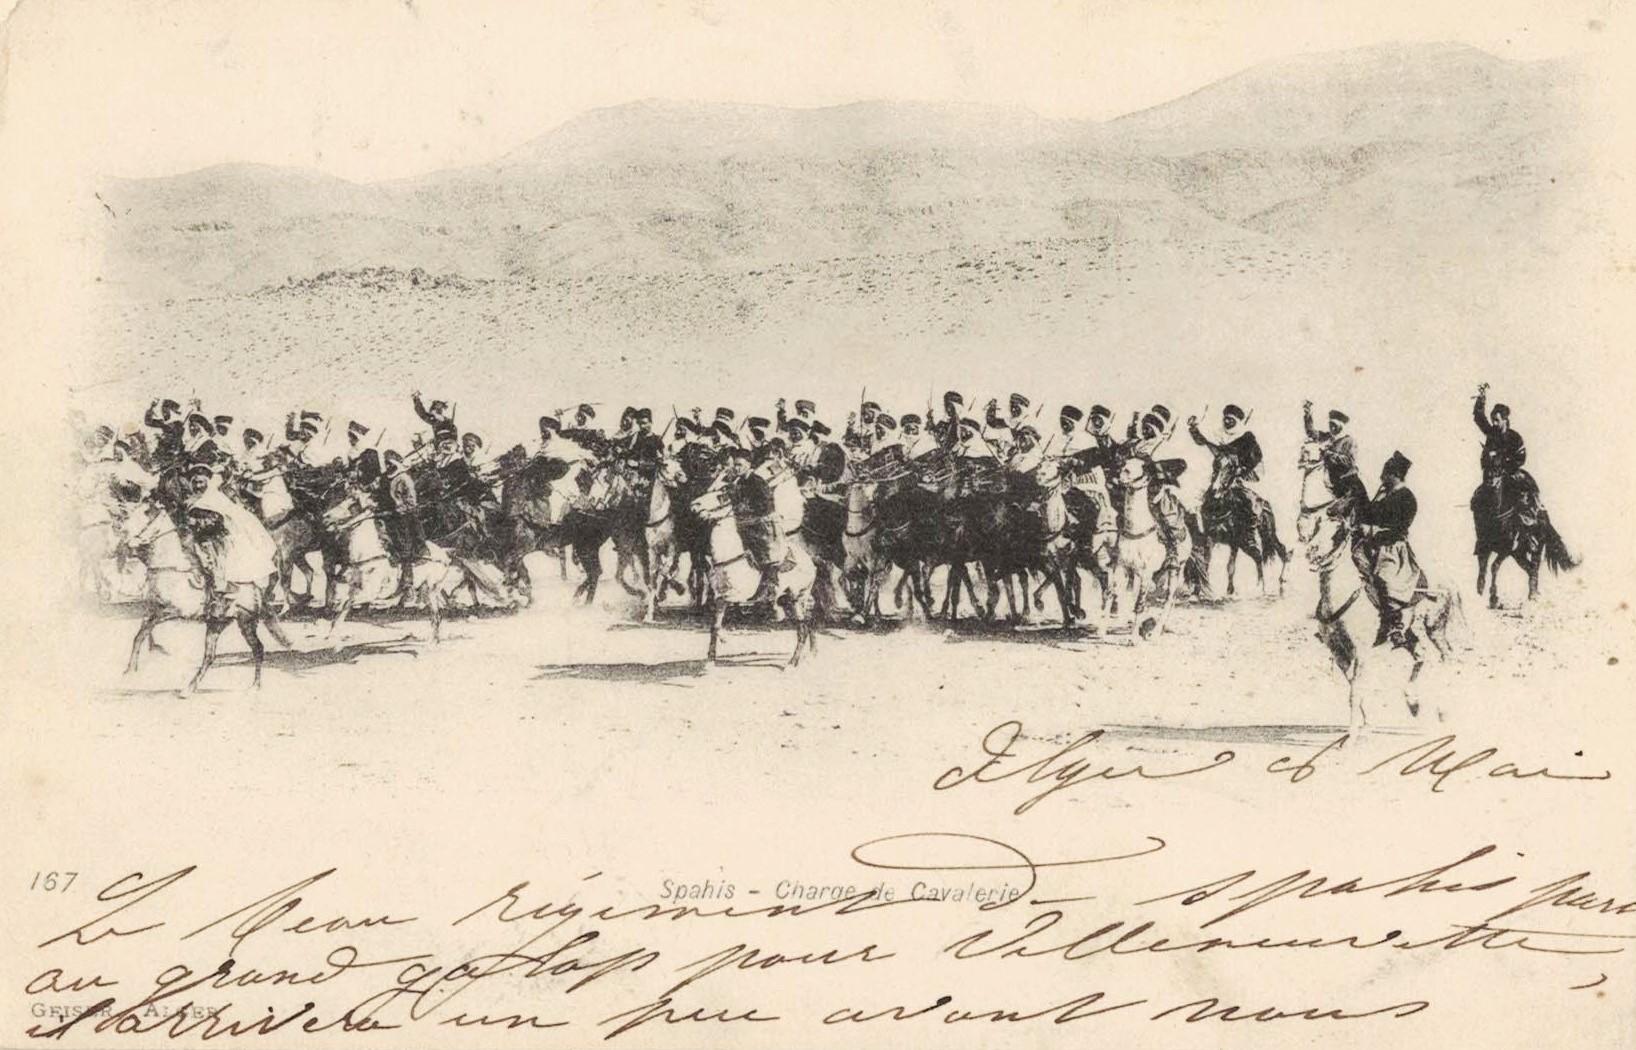 Alger 6 Mai
167
Spahis - Charge de Cavalerie
Le beau régiment de spahis part
au grand galop pour Villeneuvette,
il arrivera un peu avant nous
GEISER ALGER